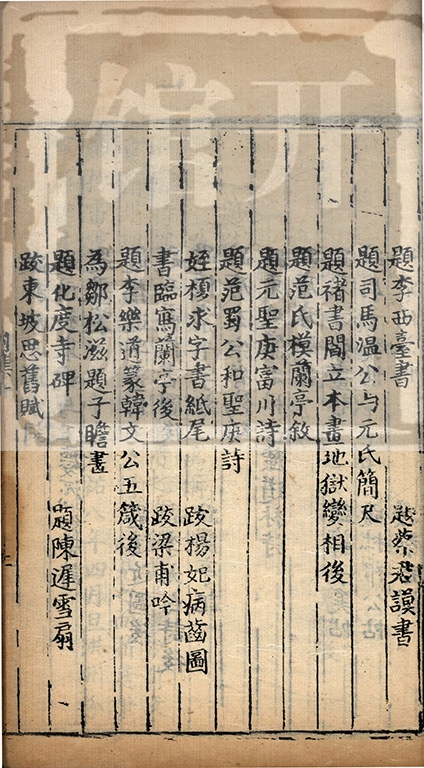 題李西臺書　跋蔡君謨書
題司馬温公与元氏簡尺
題褚書閻立本畫地獄變相後
題范氏模蘭亭敘
題元聖庚富川詩
題范蜀公和聖庚詩
姪榎求字書紙尾　跋楊妃病齒圖
書臨寫蘭亭後　跋梁甫吟
題李樂道篆韓文公五箴後
為鄒松滋題子瞻畫
題化度寺碑　題陳遲雪扇
跋東坡思舊賦
开馆